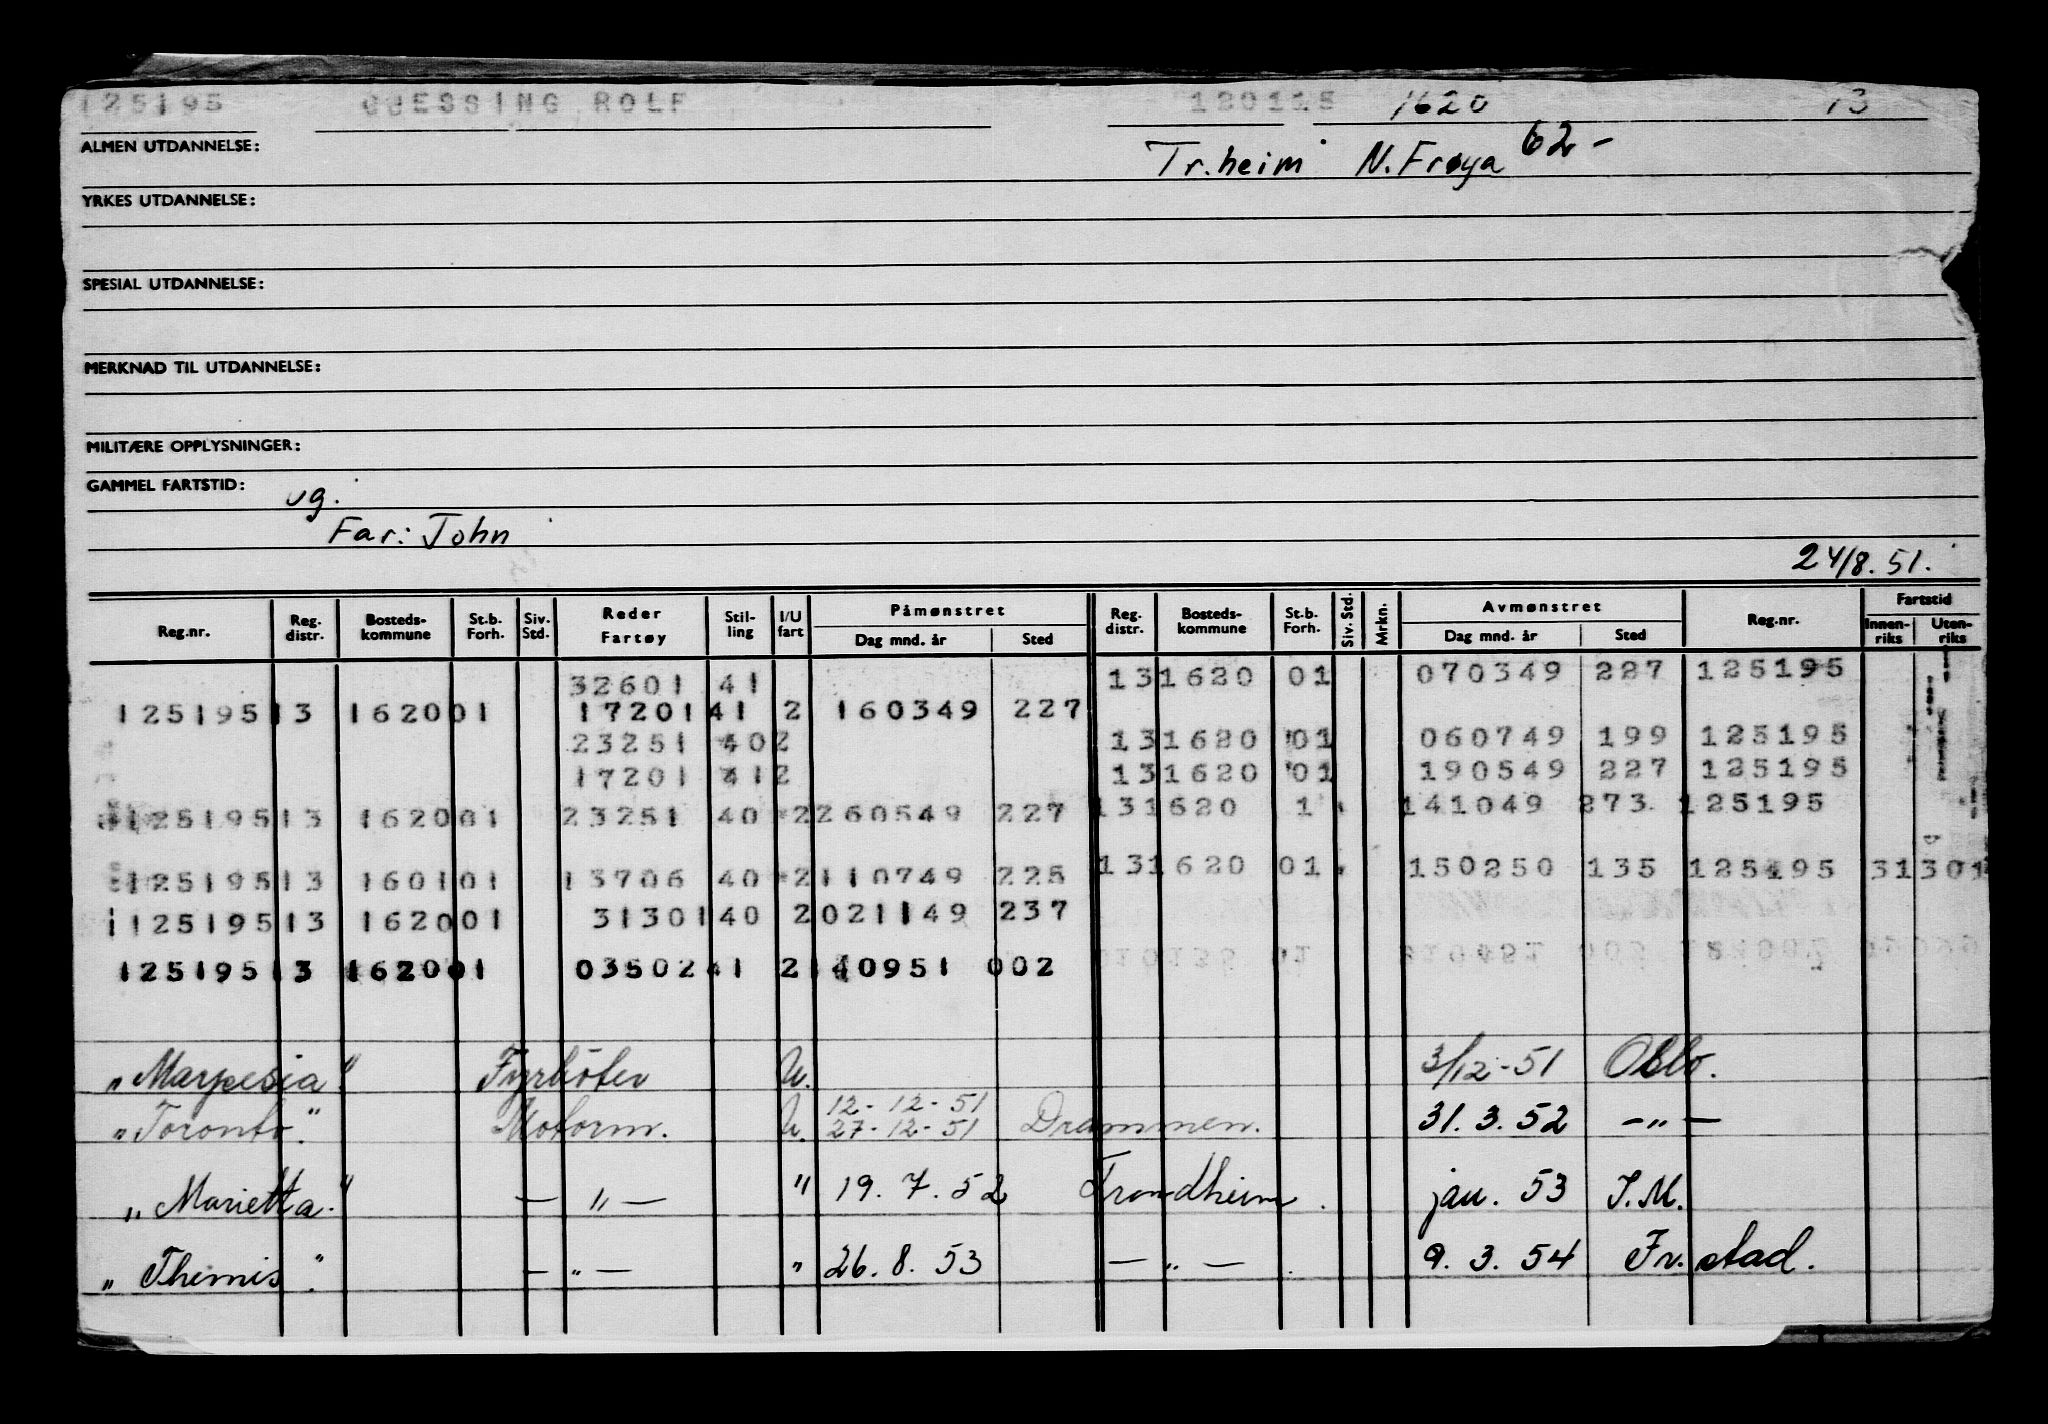 125195 GJESSING, ROLF 120115 1620 13
ALMEN UTDANNELSE: Tr.heim N. Frøya 62-
YRKES UTDANNELSE:
SPESIAL UTDANNELSE:
MERKNAD TIL UTDANNELSE:
MILITÆRE OPPLYSNINGER:
GAMMEL FARTSTID: ug.
Far: John
24/8.51.
Reg.nr. Reg. distr. Bosteds-kommune St.b. Forh. Siv. Std. Reder Fartøy Stil-ling I/U fart Påmønstret Dag mnd. år Sted Reg. distr. Bosteds-kommune St.b. Forh. Siv. Std. Mrkn. Avmønstret Dag mnd. år Sted Reg.nr. Fartstid Innen-riks Uten-riks
32601 41 13 1620 01 070349 227 125195
125195 13 1620 01 17201 41 2 160349 227
23251 40 2 13 1620 01 060749 199 125195
17201 41 2 13 1620 01 190549 227 125195
125195 13 1620 01 23251 40 2 260549 227 13 1620 1 141049 273 125195
125195 13 1601 01 13706 40 2 110749 225 13 1620 01 150250 135 125195 31301
125195 13 1620 01 31301 40 2 021149 237
125195 13 1620 01 03502 41 2 140951 002
„Marpesia" Fyrböter U. 3/12-51 Oslo.
„Toronto." Motorm. U. 12-12-51 27-12-51 Drammen. 31.3.52 —„—
„Marietta." —„— " 19.7.52 Trondheim. jan. 53 I.M.
„Themis." —„— " 26.8.53 —„—. 9.3.54 Fr.stad.